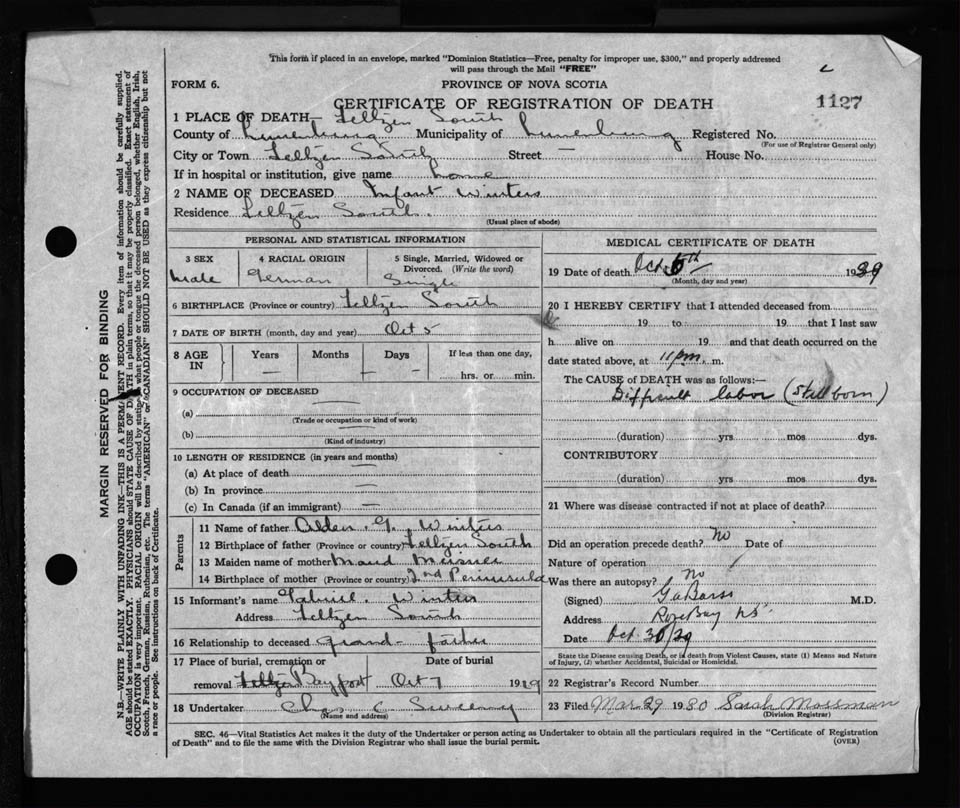 This form if placed in an envelope, marked "Dominion Statistics—Free, penalty for improper use, $300," and properly addressed
will pass through the Mail "FREE"
FORM 6.
PROVINCE OF NOVA SCOTIA
CERTIFICATE OF REGISTRATION OF DEATH
1127
1 PLACE OF DEATH— Feltzen South
County of Lunenburg Municipality of Lunenburg Registered No.
(For use of Registrar General only)
City or Town Feltzen South Street — House No.
If in hospital or institution, give name home
2 NAME OF DECEASED Infant Winters
Residence Feltzen South.
(Usual place of abode)
PERSONAL AND STATISTICAL INFORMATION
3 SEX 4 RACIAL ORIGIN 5 Single, Married, Widowed or
Divorced. (Write the word)
male German Single
6 BIRTHPLACE (Province or country) Feltzen South
7 DATE OF BIRTH (month, day and year) Oct 5
8 AGE IN Years Months Days If less than one day,
— — — hrs. or min.
9 OCCUPATION OF DECEASED
(a)
(Trade or occupation or kind of work)
(b)
(Kind of industry)
10 LENGTH OF RESIDENCE (in years and months)
(a) At place of death —
(b) In province —
(c) In Canada (if an immigrant) —
Parents
11 Name of father Alden. G. Winters
12 Birthplace of father (Province or country) Feltzen South
13 Maiden name of mother Maud Meisner
14 Birthplace of mother (Province or country) 2nd Peninsula
15 Informant's name Gabriel. Winters
Address Feltzen South
16 Relationship to deceased grand father
17 Place of burial, cremation or Date of burial
removal Feltzen Bayport Oct 7 1929
18 Undertaker Chas C Sweeny
(Name and address)
MEDICAL CERTIFICATE OF DEATH
19 Date of death Oct. 5th 1929
(Month, day and year)
20 I HEREBY CERTIFY that I attended deceased from
19 to 19 that I last saw
h alive on 19 and that death occurred on the
date stated above, at 11 pm. m.
The CAUSE of DEATH was as follows:—
Difficult labor (Stillborn)
(duration) yrs mos dys.
CONTRIBUTORY
(duration) yrs mos dys.
21 Where was disease contracted if not at place of death?
Did an operation precede death? No Date of
Nature of operation
Was there an autopsy? no
(Signed) M.D.
Address Rose Bay NS
Date Oct. 30/29
State the Disease causing Death, or in death from Violent Causes, state (1) Means and Nature
of Injury, (2) whether Accidental, Suicidal or Homicidal.
22 Registrar's Record Number
23 Filed Mar 29 1930 Sarah Mossman
(Division Registrar)
SEC. 46—Vital Statistics Act makes it the duty of the Undertaker or person acting as Undertaker to obtain all the particulars required in the "Certificate of Registration
of Death" and to file the same with the Division Registrar who shall issue the burial permit.
(OVER)
MARGIN RESERVED FOR BINDING
N.B.—WRITE PLAINLY WITH UNFADING INK—THIS IS A PERMANENT RECORD. Every item of information should be carefully supplied.
AGE should be stated EXACTLY. PHYSICIANS should STATE CAUSE OF DEATH in plain terms, so that it may be properly classified. Exact statement of
OCCUPATION is very important. RACIAL ORIGIN will be described by stating what people or tongue the deceased person belonged, whether English, Irish,
Scotch, French, German, Russian, Ruthenian, etc. The terms "AMERICAN" or "CANADIAN" SHOULD NOT BE USED as they express citizenship but not
a race or people. See instructions on back of Certificate.